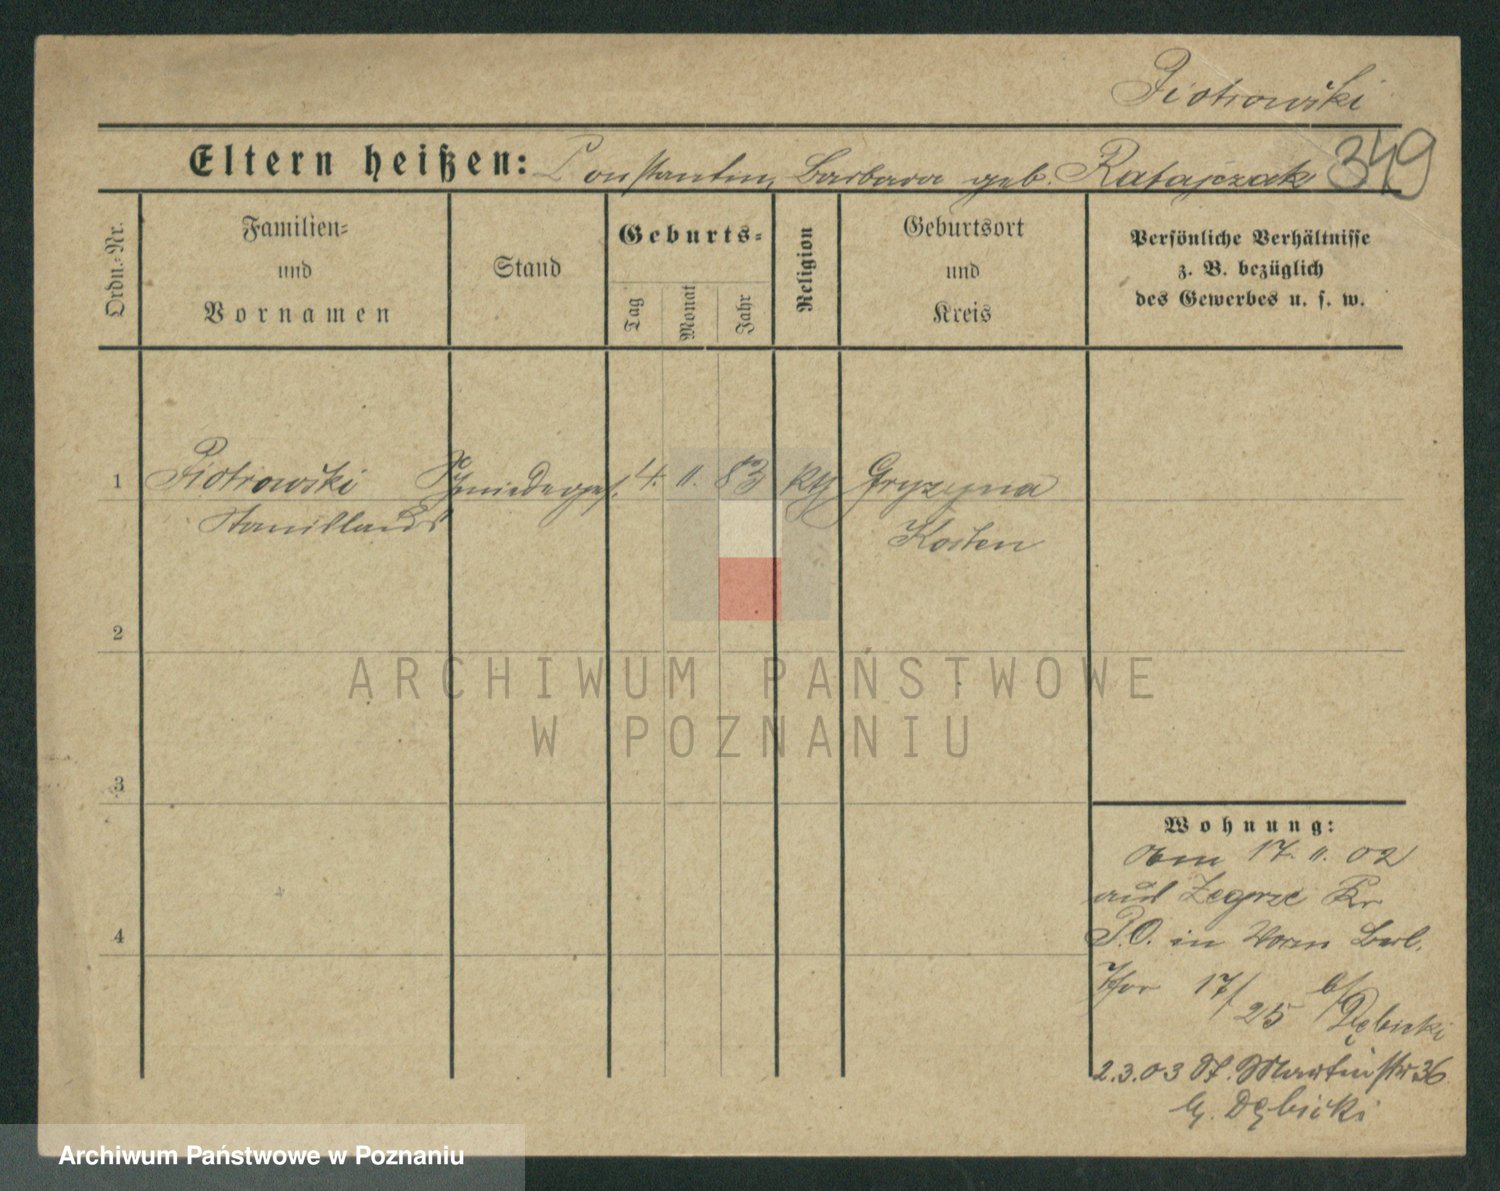 Piotrowski
349
Eltern heißen: Constantin, Barbara geb. Ratajczak
Ordn.-Nr.
Familien-
und
Vornamen
Stand
Geburts-
Tag
Monat
Jahr
Religion
Geburtsort
und
Kreis
Persönliche Verhältnisse
z. B. bezüglich
des Gewerbes u. s. w.
1 Piotrowski Schmiedeges. 4. 11. 83 kth Gryzyna
Stanislaus Kosten
2
3
4
Wohnung:
17. 11. 02
aus Zegrze Kr
P.O. in Berl.
Thor 17/
25 b/ Dębicki
2.3.03 St. Martinstr 36
b. Dębicki
ARCHIWUM PAŃSTWOWE
W POZNANIU
Archiwum Państwowe w Poznaniu